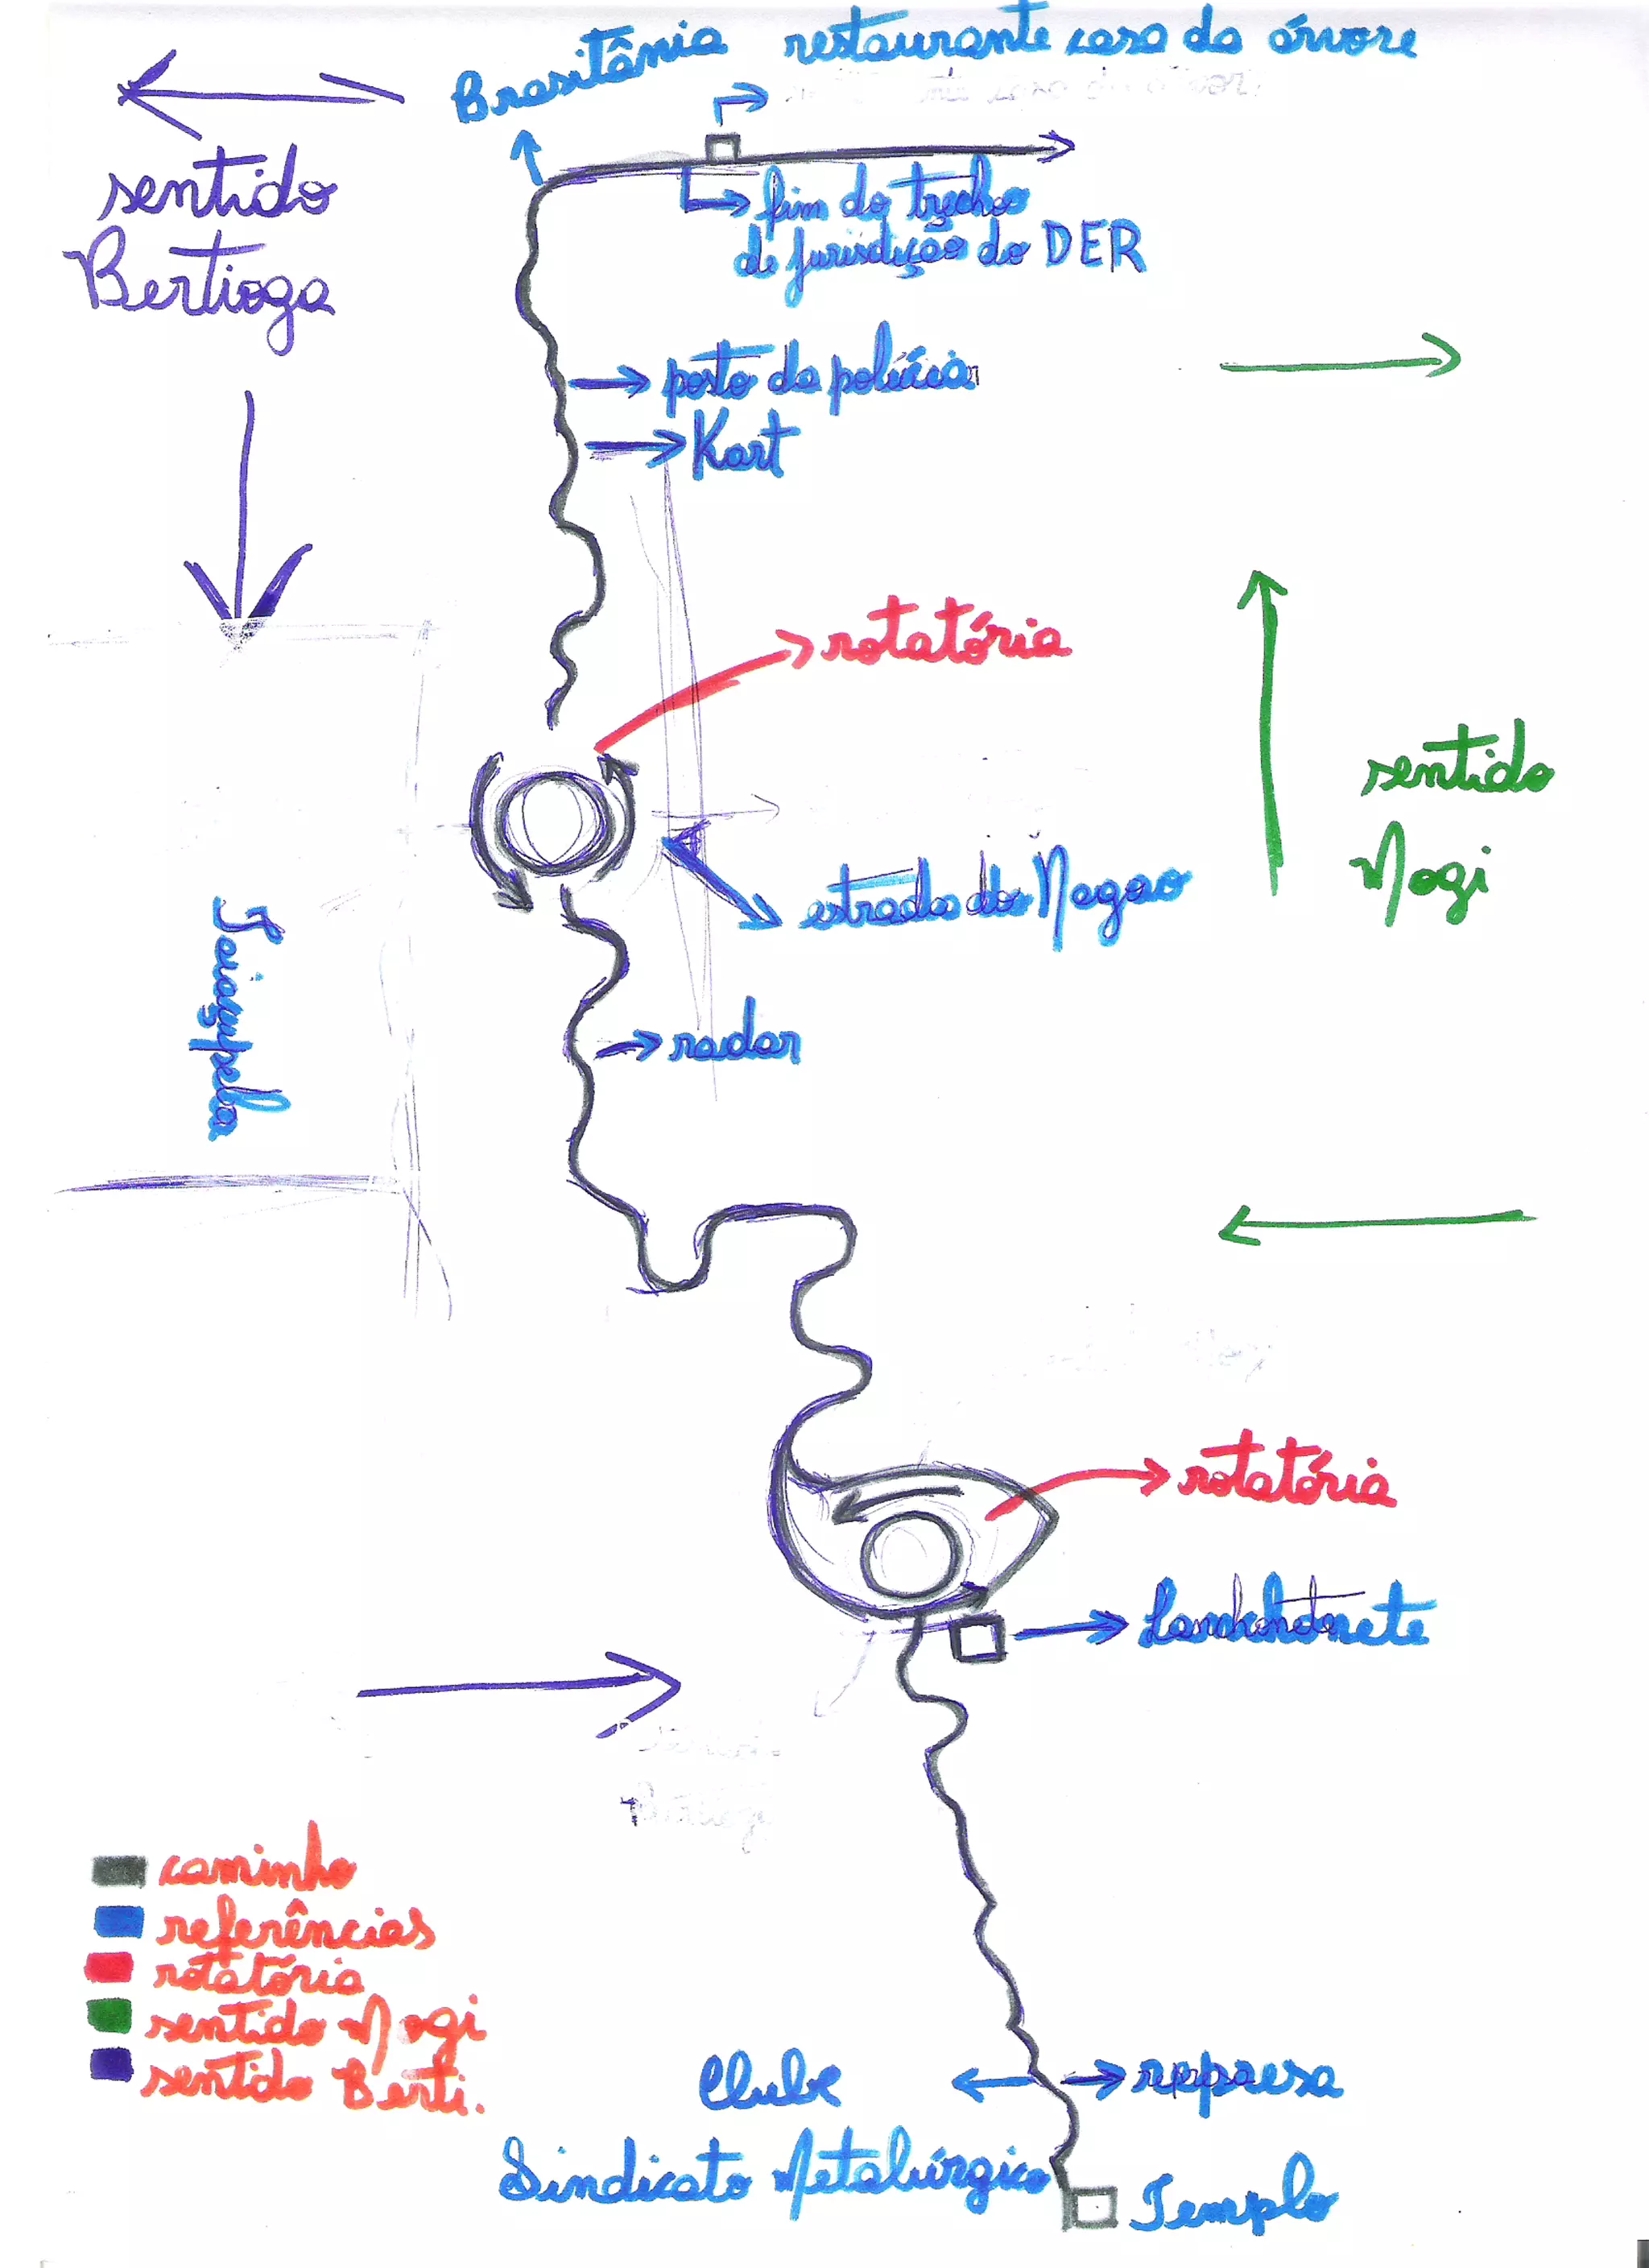 Brasitânia
restaurante casa da árvore
sentido
Bertioga
fim do trecho
de jurisdição do DER
posto da polícia
Kart
rotatória
sentido
Mogi
estrada do Nagao
Taiaçupeba
radar
rotatória
Lanchonete
caminho
referências
rotatória
sentido Mogi
sentido Berti.
Clube
Sindicato Metalúrgico
represa
Templo